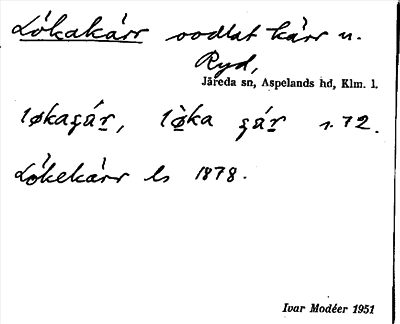 Lökakärr oodlat kärr n.
Ryd,
Järeda sn, Aspelands hd, Klm. l.
løkaɕár, lø̀ka ɕár s. 72.
Lökekärr ls 1878.
Ivar Modéer 1951